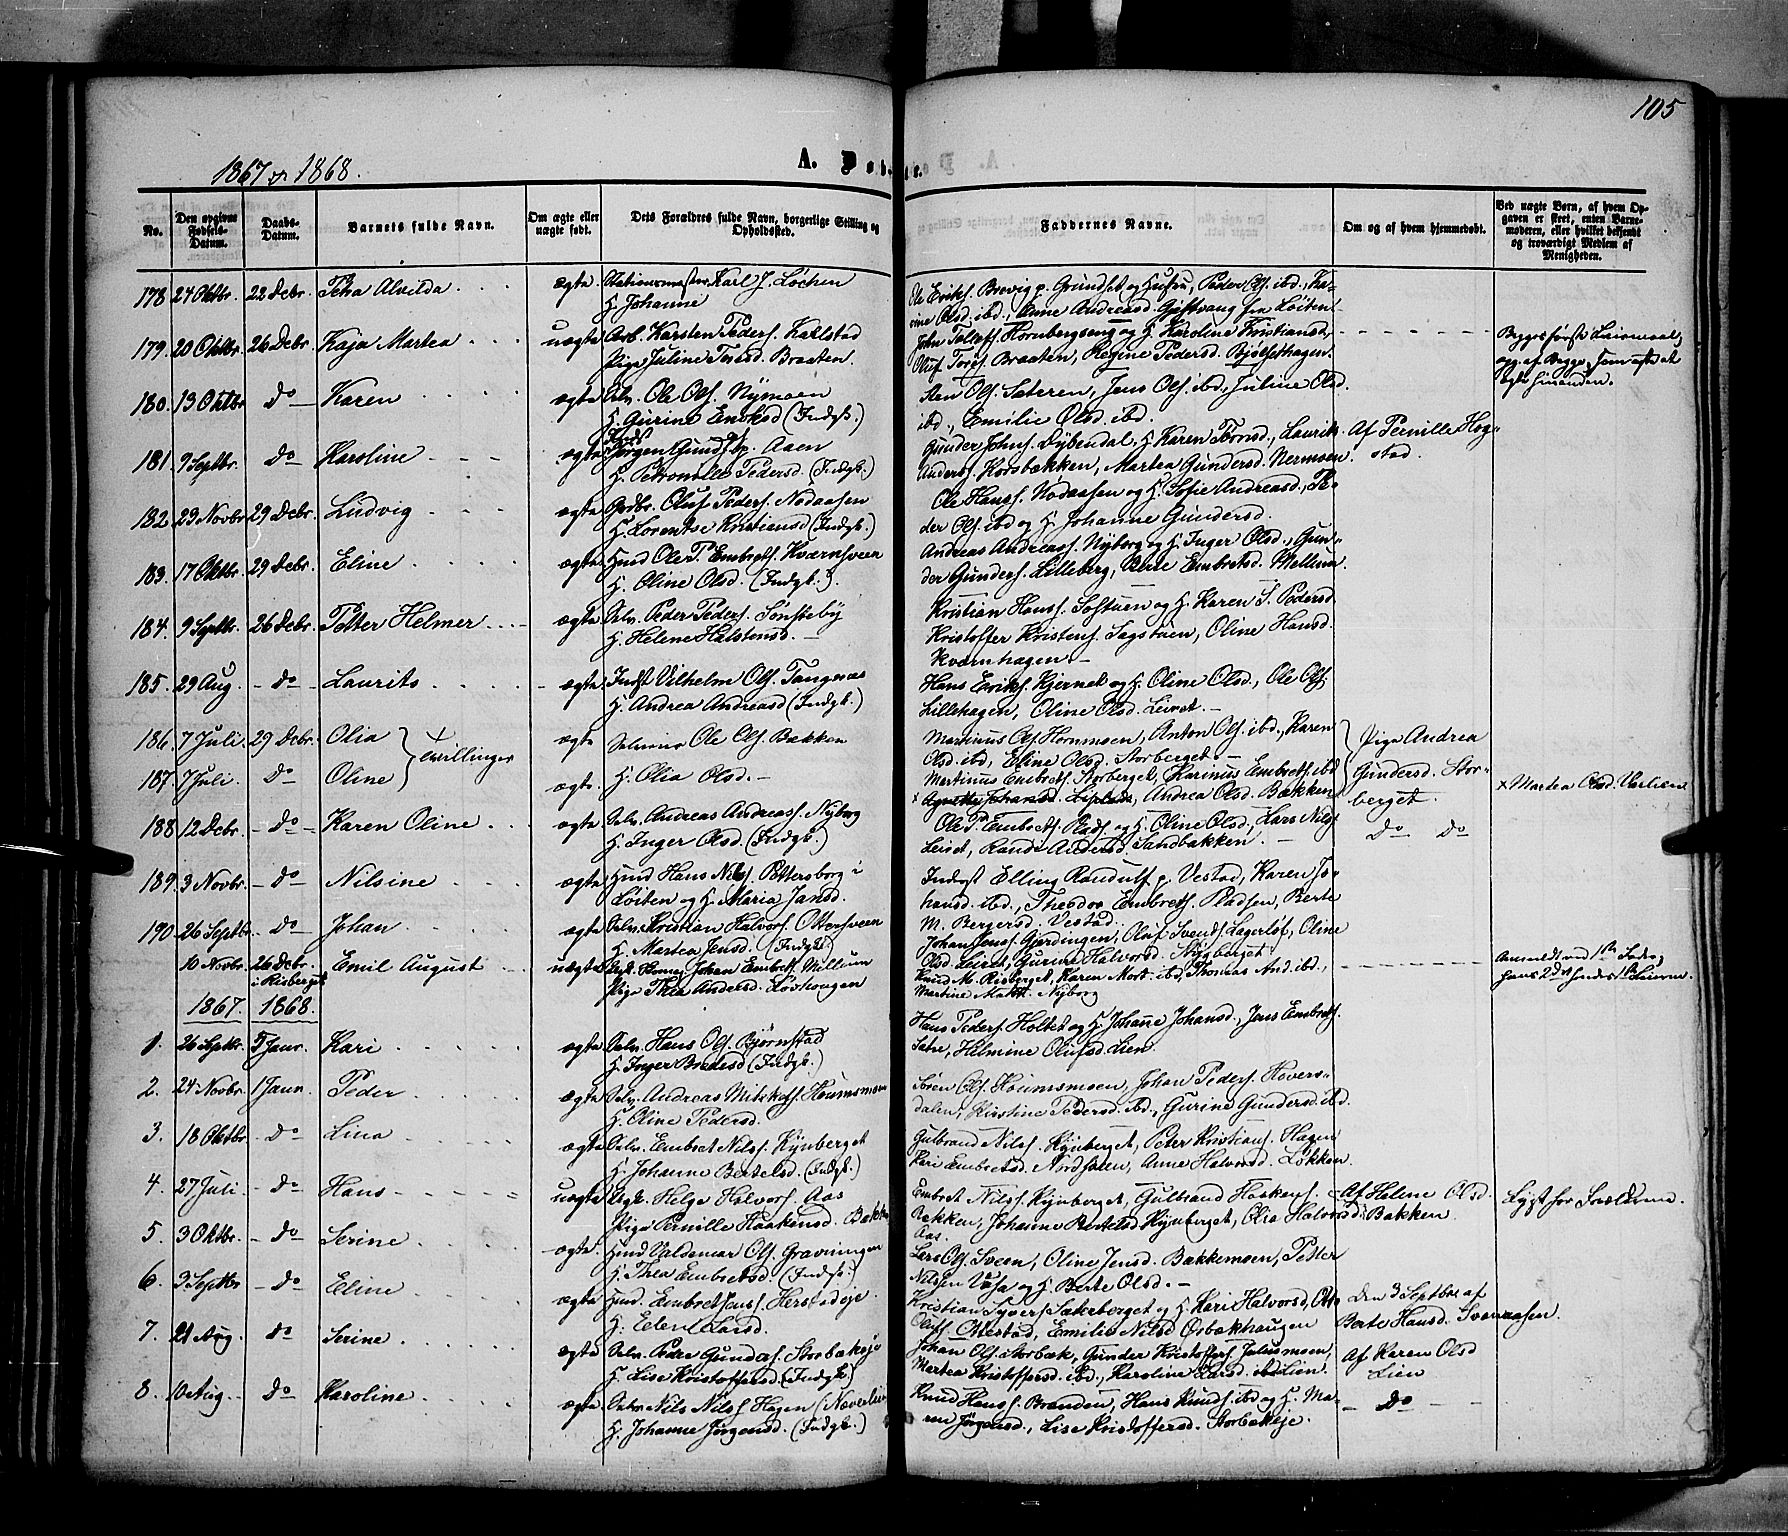 105
1867 & 1868.
A. Døbte.
No.
Den opgivne Fødsels-Datum.
Daabs-Datum.
Barnets fulde Navn.
Om ægte eller uægte født.
Dets Forældres fulde Navn, borgerlige Stilling og Opholdssted.
Faddernes Navne.
Om og af hvem hjemmedøbt.
Ved uægte Børn, af hvem Opgaven er skeet, enten Barnemoderen, eller hvilket bekjendt og troværdigt Medlem af Menigheden.
178 24 Oktbr. 22 Debr. Petra Alvilda ægte Stationsmester Karl J. Løchen
H. Johanne
Ole Eriks. Brevig p. Grundset og Hustru, Peder Ols. ibd., Ka-
rine Olsd. ibd., Anne Andreasd. Gjestvang fra Løiten
179. 20 Oktbr. 26 Debr. Kaja Martea uægte Arb. Karsten Peders. Karlstad
Pige Juline Toresd. Braaten.
John Tollefs. Hornbergseng og H. Karoline Kristiansd.,
Oluf Tores. Braaten, Regine Pedersd. Bjølsethagen.
Begges første Leiermaal,
180. 13 Oktbr. Do Karen ægte Selv. Ole Ols. Nymoen
H. Gurine Eriksd. (Indgb.)
Aen Ols. Sæteren, Jens Ols. ibd., Juline Olsd.
ibd., Emilie Olsd. ibd.
181. 9 Septbr. Do Karoline ægte Jørgen Gunds. Aaen
H. Petronelle Pedersd. (Indgb.)
Gunder Johns. Dybendal, H. Karen Torsd., Laurits
Anders. Korsbækken, Martea Gundersd. Nermoen.
Af Pernille Hog-
stad.
182 23 Novbr. 29 Debr. Ludvig ægte Gbr. Oluf Peders. Nodaasen
H. Lorentse Kristiansd. (Indgb.)
Ole Hans. Nodaasen og H. Sofie Andreasd., Pe-
der Ols. ibd og H. Johanne Gundersd.
183. 17 Oktbr. 29 Debr. Eline ægte Hmd Ole P. Embrets. Kværnsveen
H. Oline Olsd. (Indgb.)
Andreas Andreas. Nyborg og H. Inger Olsd., Gun-
der Gunders. Lilleberg, Berte Embretsd. Mellum.
184. 9 Septbr. 26 Debr. Petter Helmer ægte Selv. Peder Peders. Sønsteby
H. Helene Halstensd.
Kristian Hans. Løfsuen og H. Karen S. Pedersd.
Kristoffer Kristens. Sagstuen, Oline Hansd.
Kværnhagen.
185. 29 Aug. Do Laurits ægte Indst Vilhelm Ols. Tangenæs
H. Andrea Andreasd (Indgb.)
Hans Eriks. Kjernet og H. Oline Olsd., Ole Ols.
Lillehagen, Oline Olsd. Leiret.
186. 7 Juli 29 Debr. Olia Tvillinger ægte Selveier Ole Ols. Bækken
Martinus Ols. Hornmoen, Anton Ols. ibd., Karen
Olsd. ibd., Eline Olsd. Storberget.
Pige Andrea
187. 7 Juli. Do Oline ægte H. Olia Olsd.
Martinus Embrets. Storberget, Karinus Embrets. ibd
x Agnethe Johansd. Andrea Olsd. Bækken
Gundersd. Stor-
berget.
x Martea Olsd.
188 12 Debr. Do Karen Oline ægte Selv. Andreas Andreass. Nyborg
H. Inger Olsd. (Indgb.)
Ole P. Embrets. Plads. og H. Oline Olsd., Lars Nils.
Leiret, Randi Andersd. Sandbækken.
Do Do
189. 3 Novbr. Do Nilsine ægte Hmd Hans Nils. Pettersborg i
Løiten og H. Maria Jansd.
Inderst Elling Randulf p. Vestad, Karen Jo-
hansd. ibd., Theodor Embrets. Pladsen, Berte
M. Bergersd. Vestad.
190 26 Septbr. Do Johan ægte Selv. Kristian Halvors. Ottersveen
H. Martea Jensd. (Indgb.)
Johan Jens. Gjerdingen, Oluf Svends. Lagerløf, Oline
Olsd. Leiret, Gurine Halvorsd. Nygberget.
10 Novbr. 26 Debr. i Risberget Emil August uægte Johan Embrets. Mellum
Pige Thea Andersd. Løvhaugen
Knud M. Risberget, Karen Mort. ibd, Thomas And. ibd.,
Martine Nyborg
1867. 1868.
1. 26 Septbr. 5 Janr. Kari ægte Selv. Hans Ols. Bjørnstad
H. Inger Bredesd (Indgb.)
Hans Peders. Holtet og H. Johanne Johansd., Jens Embrets.
Sætre, Helmine Olufsd. Lien.
2. 24 Novbr. 1 Janr. Peder ægte Selv. Andreas Mikkels. Houmsmoen
H. Oline Pedersd.
Søren Ols. Houmsmoen, Johan Peders. Hovers-
dalen, Kirstine Pedersd. ibd., Gurine Gundersd. ibd.
3. 18 Oktbr. Do Lina ægte Selv. Embret Nils. Kynberget
H. Johanne Bertelsd. (Indgb.)
Gulbrand Nils. Kynberget, Peter Kristians. Hagen
Kari Embretsd. Nordsæten, Anne Halvorsd. Løkken.
4. 27 Juli Do Hans uægte Ugk. Helge Halvors. Aas
Pige Pernille Haakensd. Bækken
Embret Nils. Kynberget, Gulbrand Haakens.
Bækken, Johanne Bertelsd. Kynberget, Olia Halvorsd.
Aas.
Af Helene Olsd.
Bakken
Lyst for Forældrene.
5. 3 Oktbr. Do Serine ægte. Hmd Valdemar Ols. Gravningen
H. Thea Embretsd. (Indgb.)
Lars Ols. Sveen, Oline Jensd. Bakkemoen, Petter
Nilsen Vaja og H. Berte Olsd.
6. 3 Septbr Do Eline ægte Hmd. Embret Jens. Herstadeje.
H. Eline Larsd.
Kristian Syvers. Sæterberget og H. Kari Halvorsd,
Emilie Nilsd Osbækhaugen
Den 3 Septbr af
Berte Hansd. Svenaasen.
7. 21 Aug. Do Serine ægte Selv. Peder Gunders. Storbækeje
H. Lise Kristoffersd. (Indgb.)
Johan Ols. Storbæk, Gunder Kristoffers. Juliusmoen,
Martea Kristoffersd. ibd., Karoline Larsd. Lien.
Af Karen Olsd
Lien
8. 10 Aug. Do Karoline ægte Selv. Nils Nils. Hagen
H. Johanne Jørgensd. (Indgb.)
Knud Hans. Brænden, Hans Knuds. ibd og H. Ma-
ren Jørgensd., Lise Kristoffersd. Storbækeje.
Do